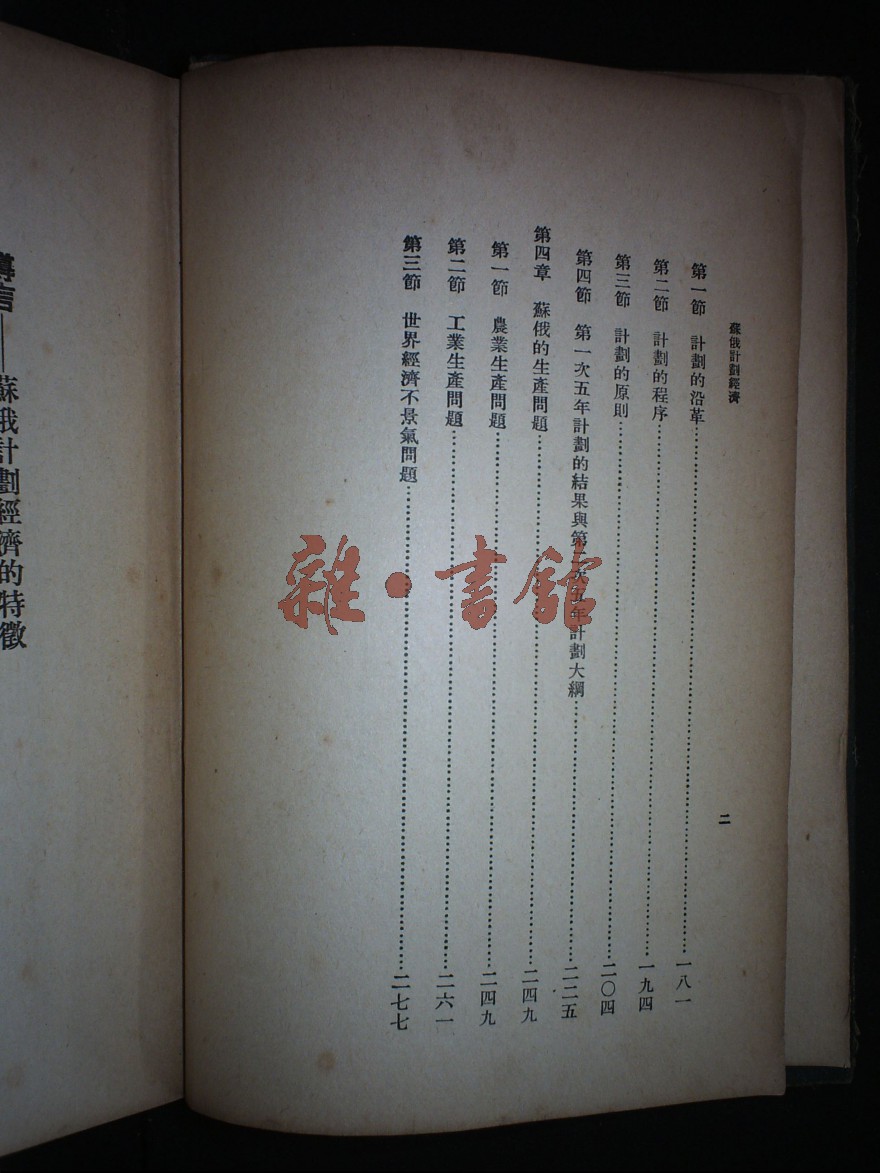 蘇俄計劃經濟
二
第一節 計劃的沿革……一八一
第二節 計劃的程序……一九四
第三節 計劃的原則……二〇四
第四節 第一次五年計劃的結果與第 次五年計劃大綱……二二五
第四章 蘇俄的生產問題……二四九
第一節 農業生產問題……二四九
第二節 工業生產問題……二六一
第三節 世界經濟不景氣問題……二七七
導言——蘇俄計劃經濟的特徵
雜·書館